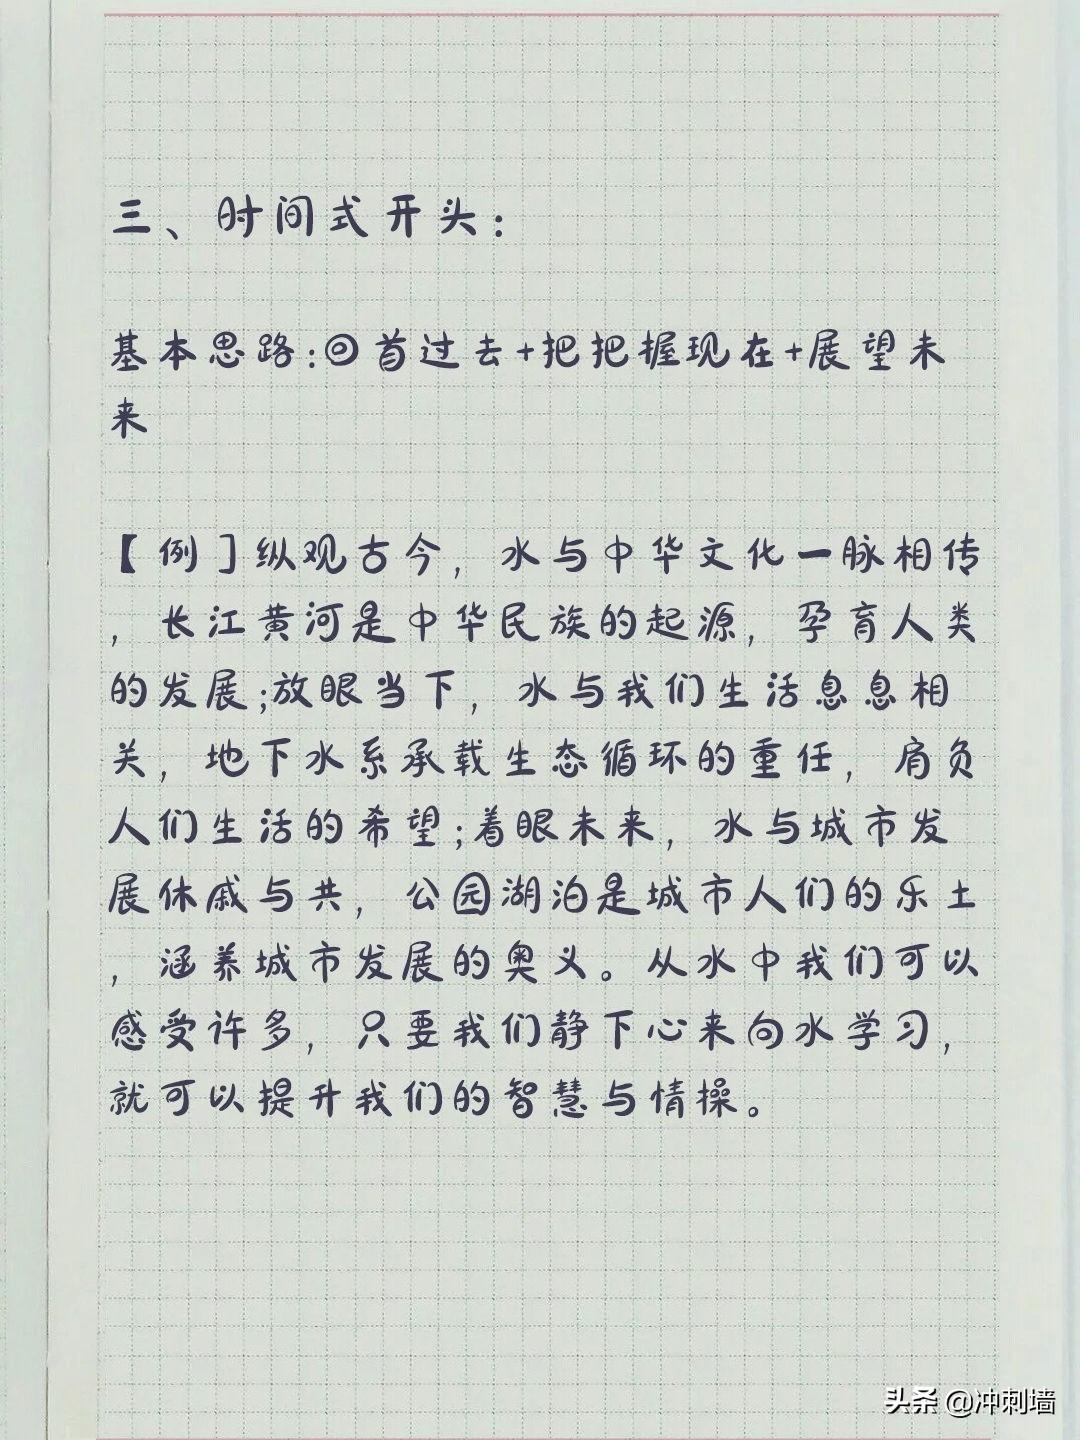 三、时间式开头:
基本思路:回首过去+把把握现在+展望未
来
【例]纵观古今，水与中华文化一脉相传
，长江黄河是中华民族的起源，孕育人类
的发展;放眼当下，水与我们生活息息相
关，地下水系承载生态循环的重任，肩负
人们生活的希望;着眼未来，水与城市发
展休戚与共，公园湖泊是城市人们的乐土
，涵养城市发展的奥义。从水中我们可以
感受许多，只要我们静下心来向水学习，
就可以提升我们的智慧与情操。
头条 @冲刺墙